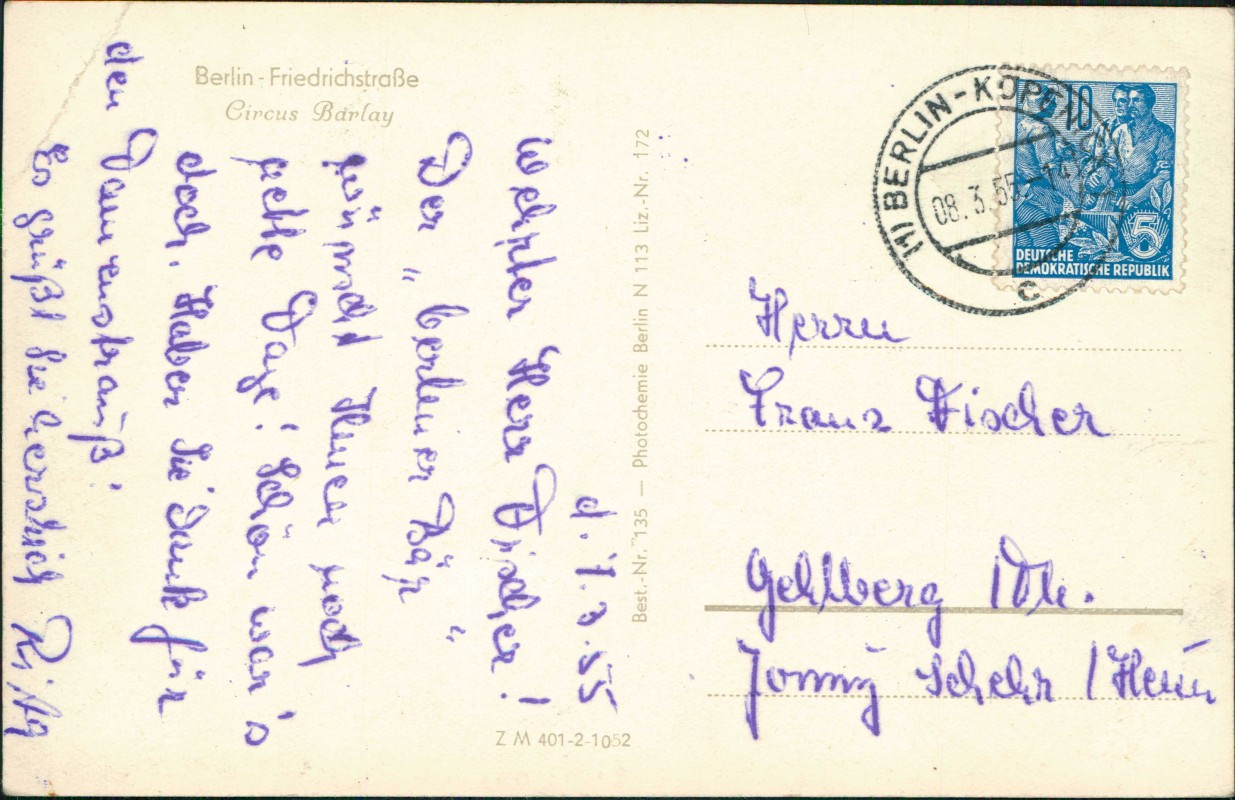 Berlin-Friedrichstraße
Circus Barlay
d. 7.3.55
Werther Herr Fischer!
Der „berliner Bär"
wünscht Ihnen noch
nette Tage! Schön war's
doch. Haben Sie Dank für
den Damenstrauß!
Es grüßt Sie herzlich
Best.-Nr. 135 — Photochemie Berlin N 113 Liz.-Nr. 172
Z M 401-2-1052
(1) BERLIN-KÖPENICK
08.3.55
c
10
5
DEUTSCHE
DEMOKRATISCHE REPUBLIK
Herrn
Franz Fischer
Gehlberg /Th.
Jonny Schehr /Heim